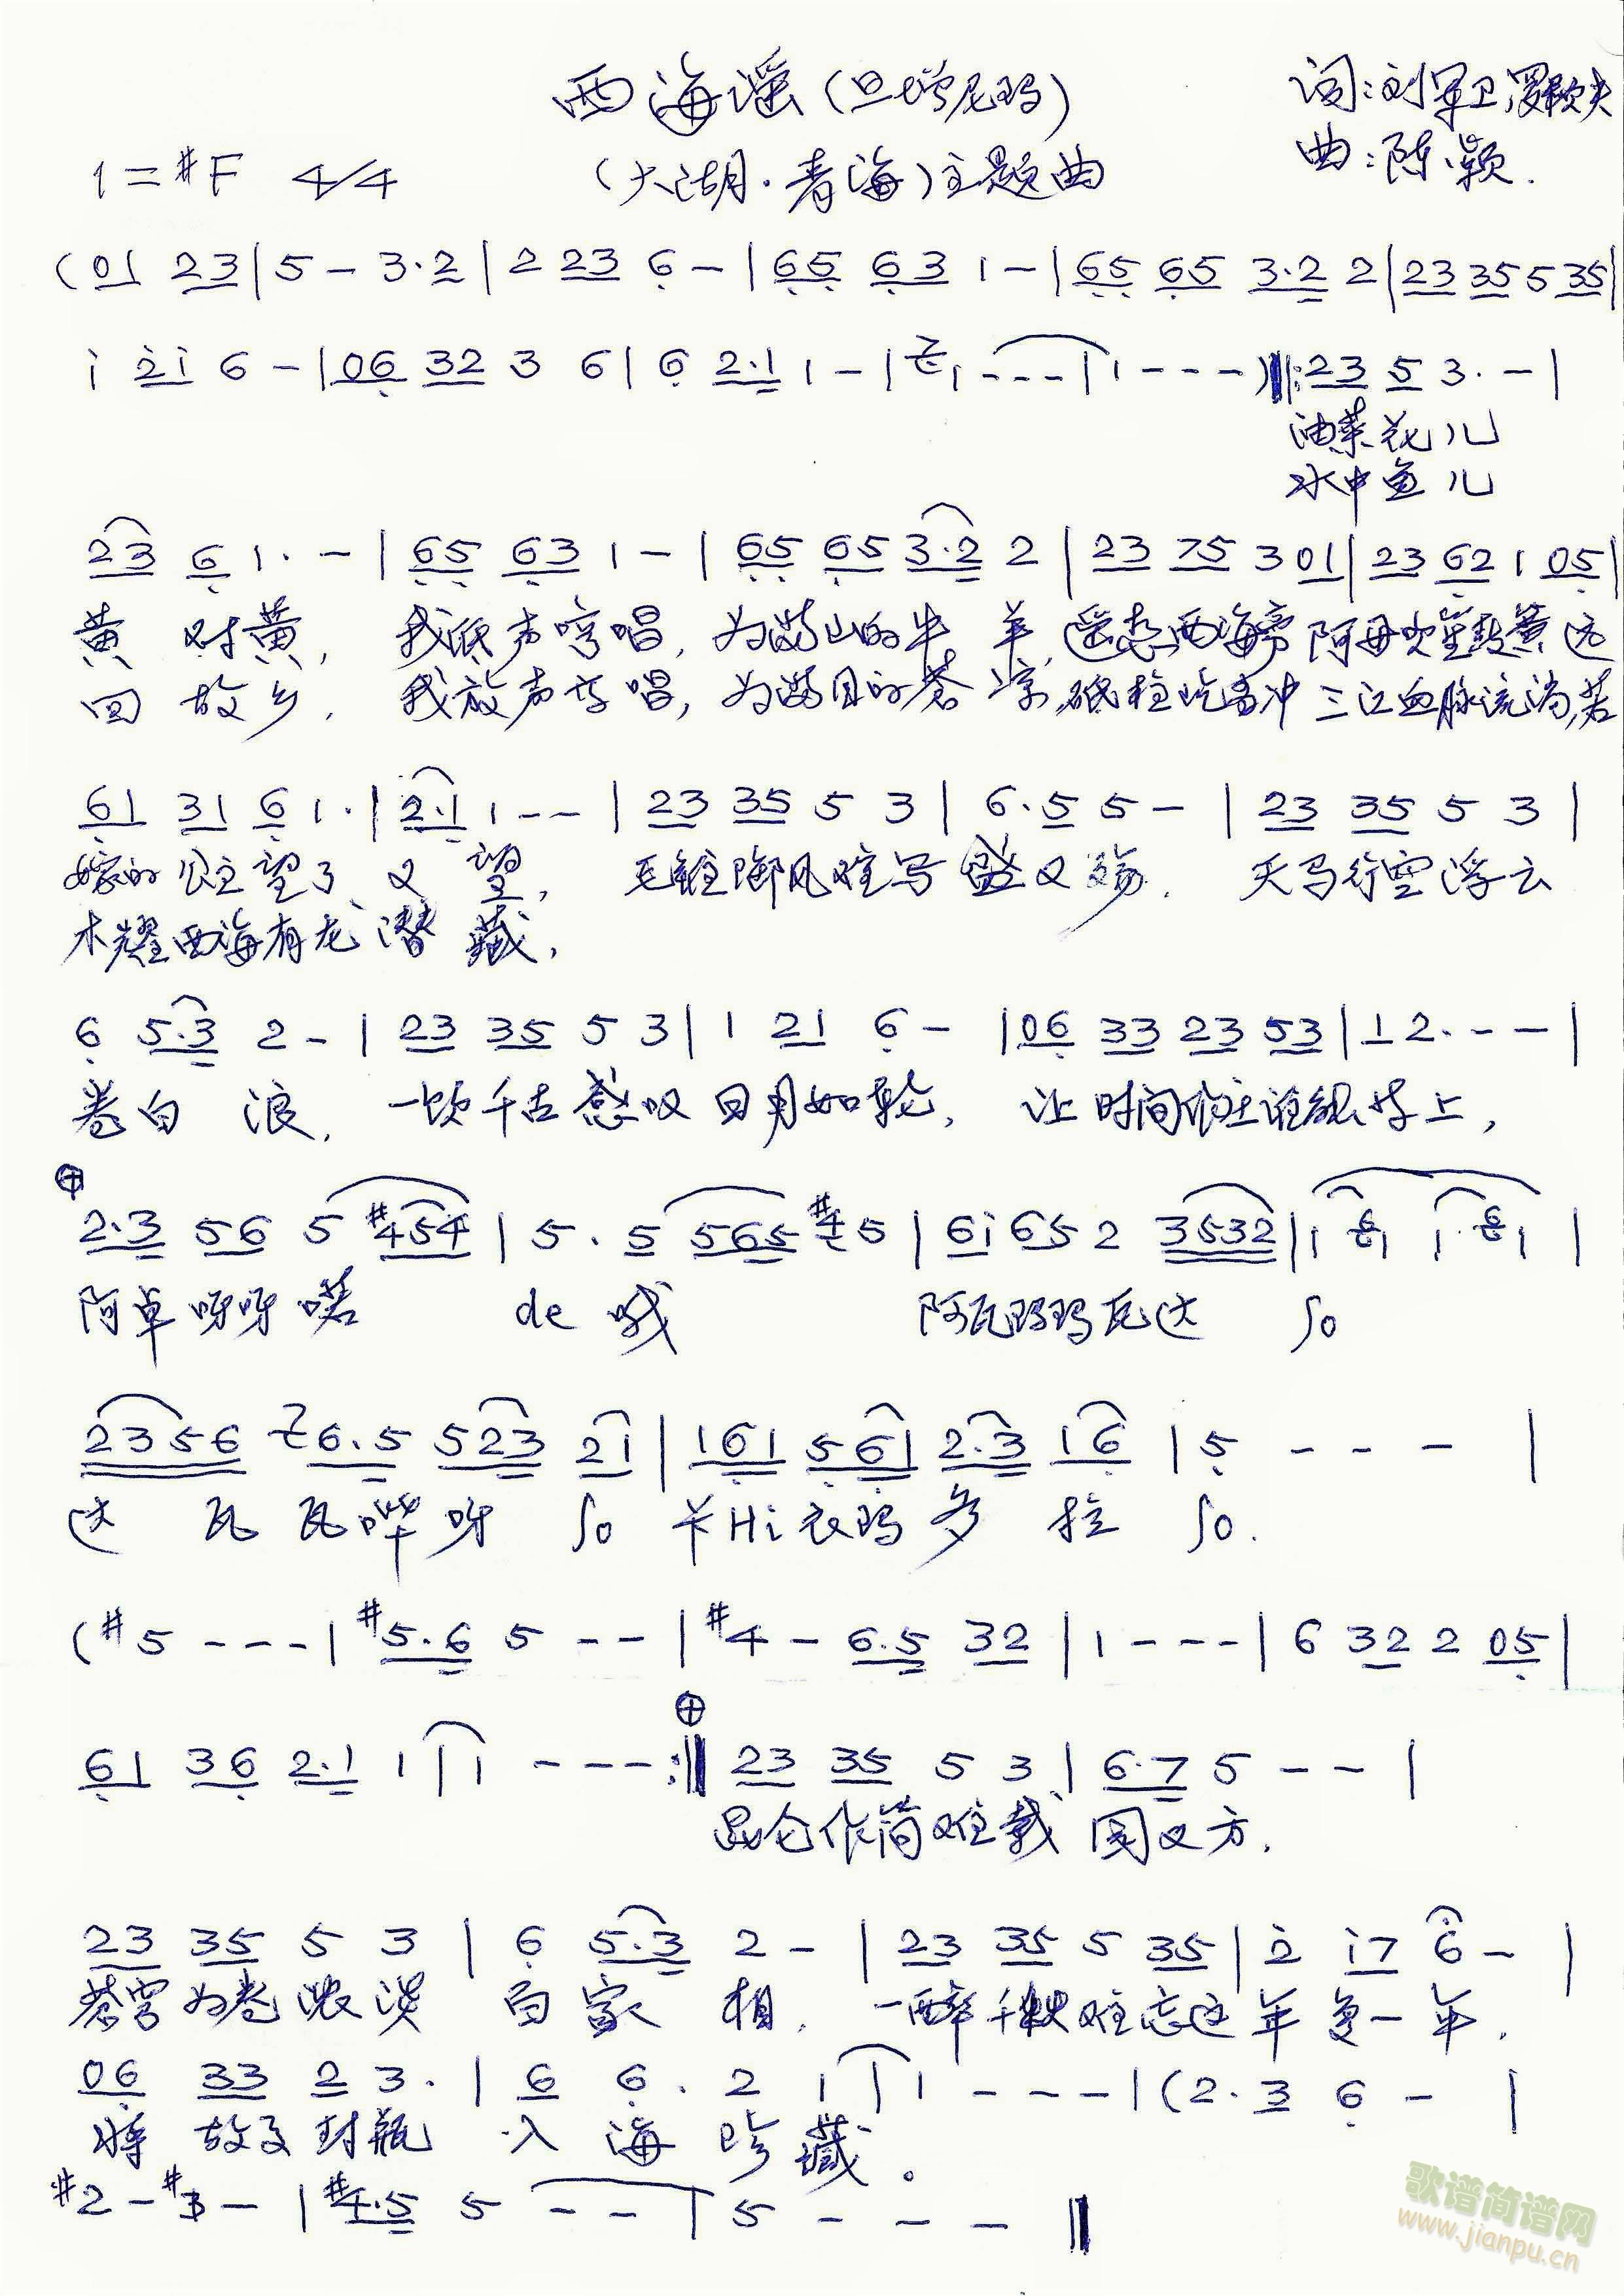 西海谣(旦增尼玛) 词:刘军卫,罗毅夫
1=#F 4/4 (大湖·青海)主题曲 曲:陈颖.
(01 23|5-3·2|2 23 6-|65 63 1-|65 65 3·2 2|23 35 5 35|
i 2i 6-|06 32 3 6|6 2·1 1-|1---|1---)‖:23 5 3·-|
油菜花儿
水中鱼儿
23 6 1·-|65 63 1-|65 65 3·2 2|23 75 3 01|23 62 1 05|
黄 对黄, 我低声 唱,为满山的牛 羊, 西海 阿母 黄 远
回 故乡, 我放声 唱,为满目的苍 凉,砥柱 冲 三江血脉流淌,若
61 31 6 1·|2·1 1--|23 35 5 3|6·5 5-|23 35 5 3|
嫁的公主望了 又 望, 毛锥御风难写盛又殇. 天马行空浮云
木耀西海有龙潜 藏,
6 5·3 2-|23 35 5 3|1 21 6-|06 33 23 53|1 2·--|
卷白 浪, 一饮千古感叹日月如轮, 让时间 上,
⊕
2·3 56 5 #454|5·5 565 #45|6i 65 2 3532|1 61 1· 61|
阿卓呀呀喏 de 哦 阿瓦玛玛瓦达 So
2356 6·5 523 21|161 561 2·3 16|5---|
达 瓦瓦哔呀 So 卡Hi衣玛多 拉 So.
(#5---|#5·6 5--|#4-6·5 32|1---|6 32 2 05|
⊕
61 36 2·1 1|1---:‖23 35 5 3|6·7 5--|
昆仑作简难载 圆又方.
23 35 5 3|6 5·3 2-|23 35 5 35|2 i7 6-|
苍穹为卷浓淡 百家 相. 一醉千秋难忘这年复一年.
06 33 2 3·|6 6·2 1|1---|(2·3 6-|
将 故事封瓶 入 海 珍藏。
#2-#3-|#4·5 5--|5---‖
歌谱简谱网
www.jianpu.cn